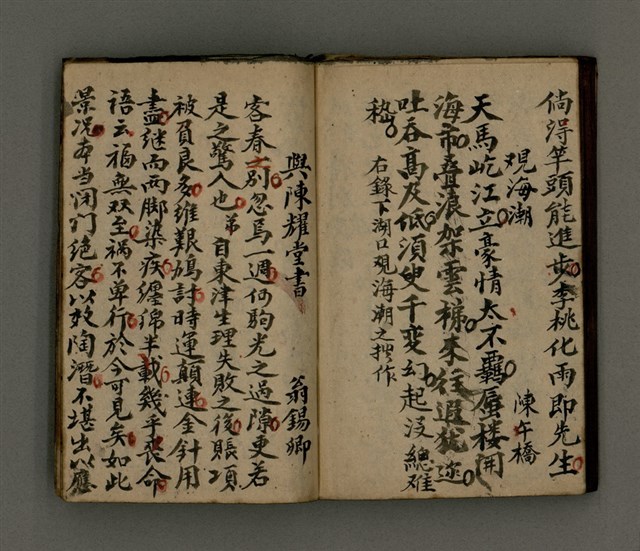 倘淂竿頭能進步李桃化雨即先生
觀海潮
陳午橋
天馬屹江立豪情太不羈蜃楼開
海市叠浪架雲梯來往遐犹迩
吐吞高及低須臾千变幻起没總难
嵇
右錄下湖口观海潮之拙作
與陳耀堂書
翁錫卿
客春一別忽焉一週何駒光之過隙更若
是之驚人也弟自東津生理失敗之後賬項
被負良多維艱鳩討時運顛連金針用
盡継而两脚染疾纏绵半載幾乎丧命
語云福無双至祸不单行於今可見矣如此
景况本当闭门绝客以效陶潛不堪出以應